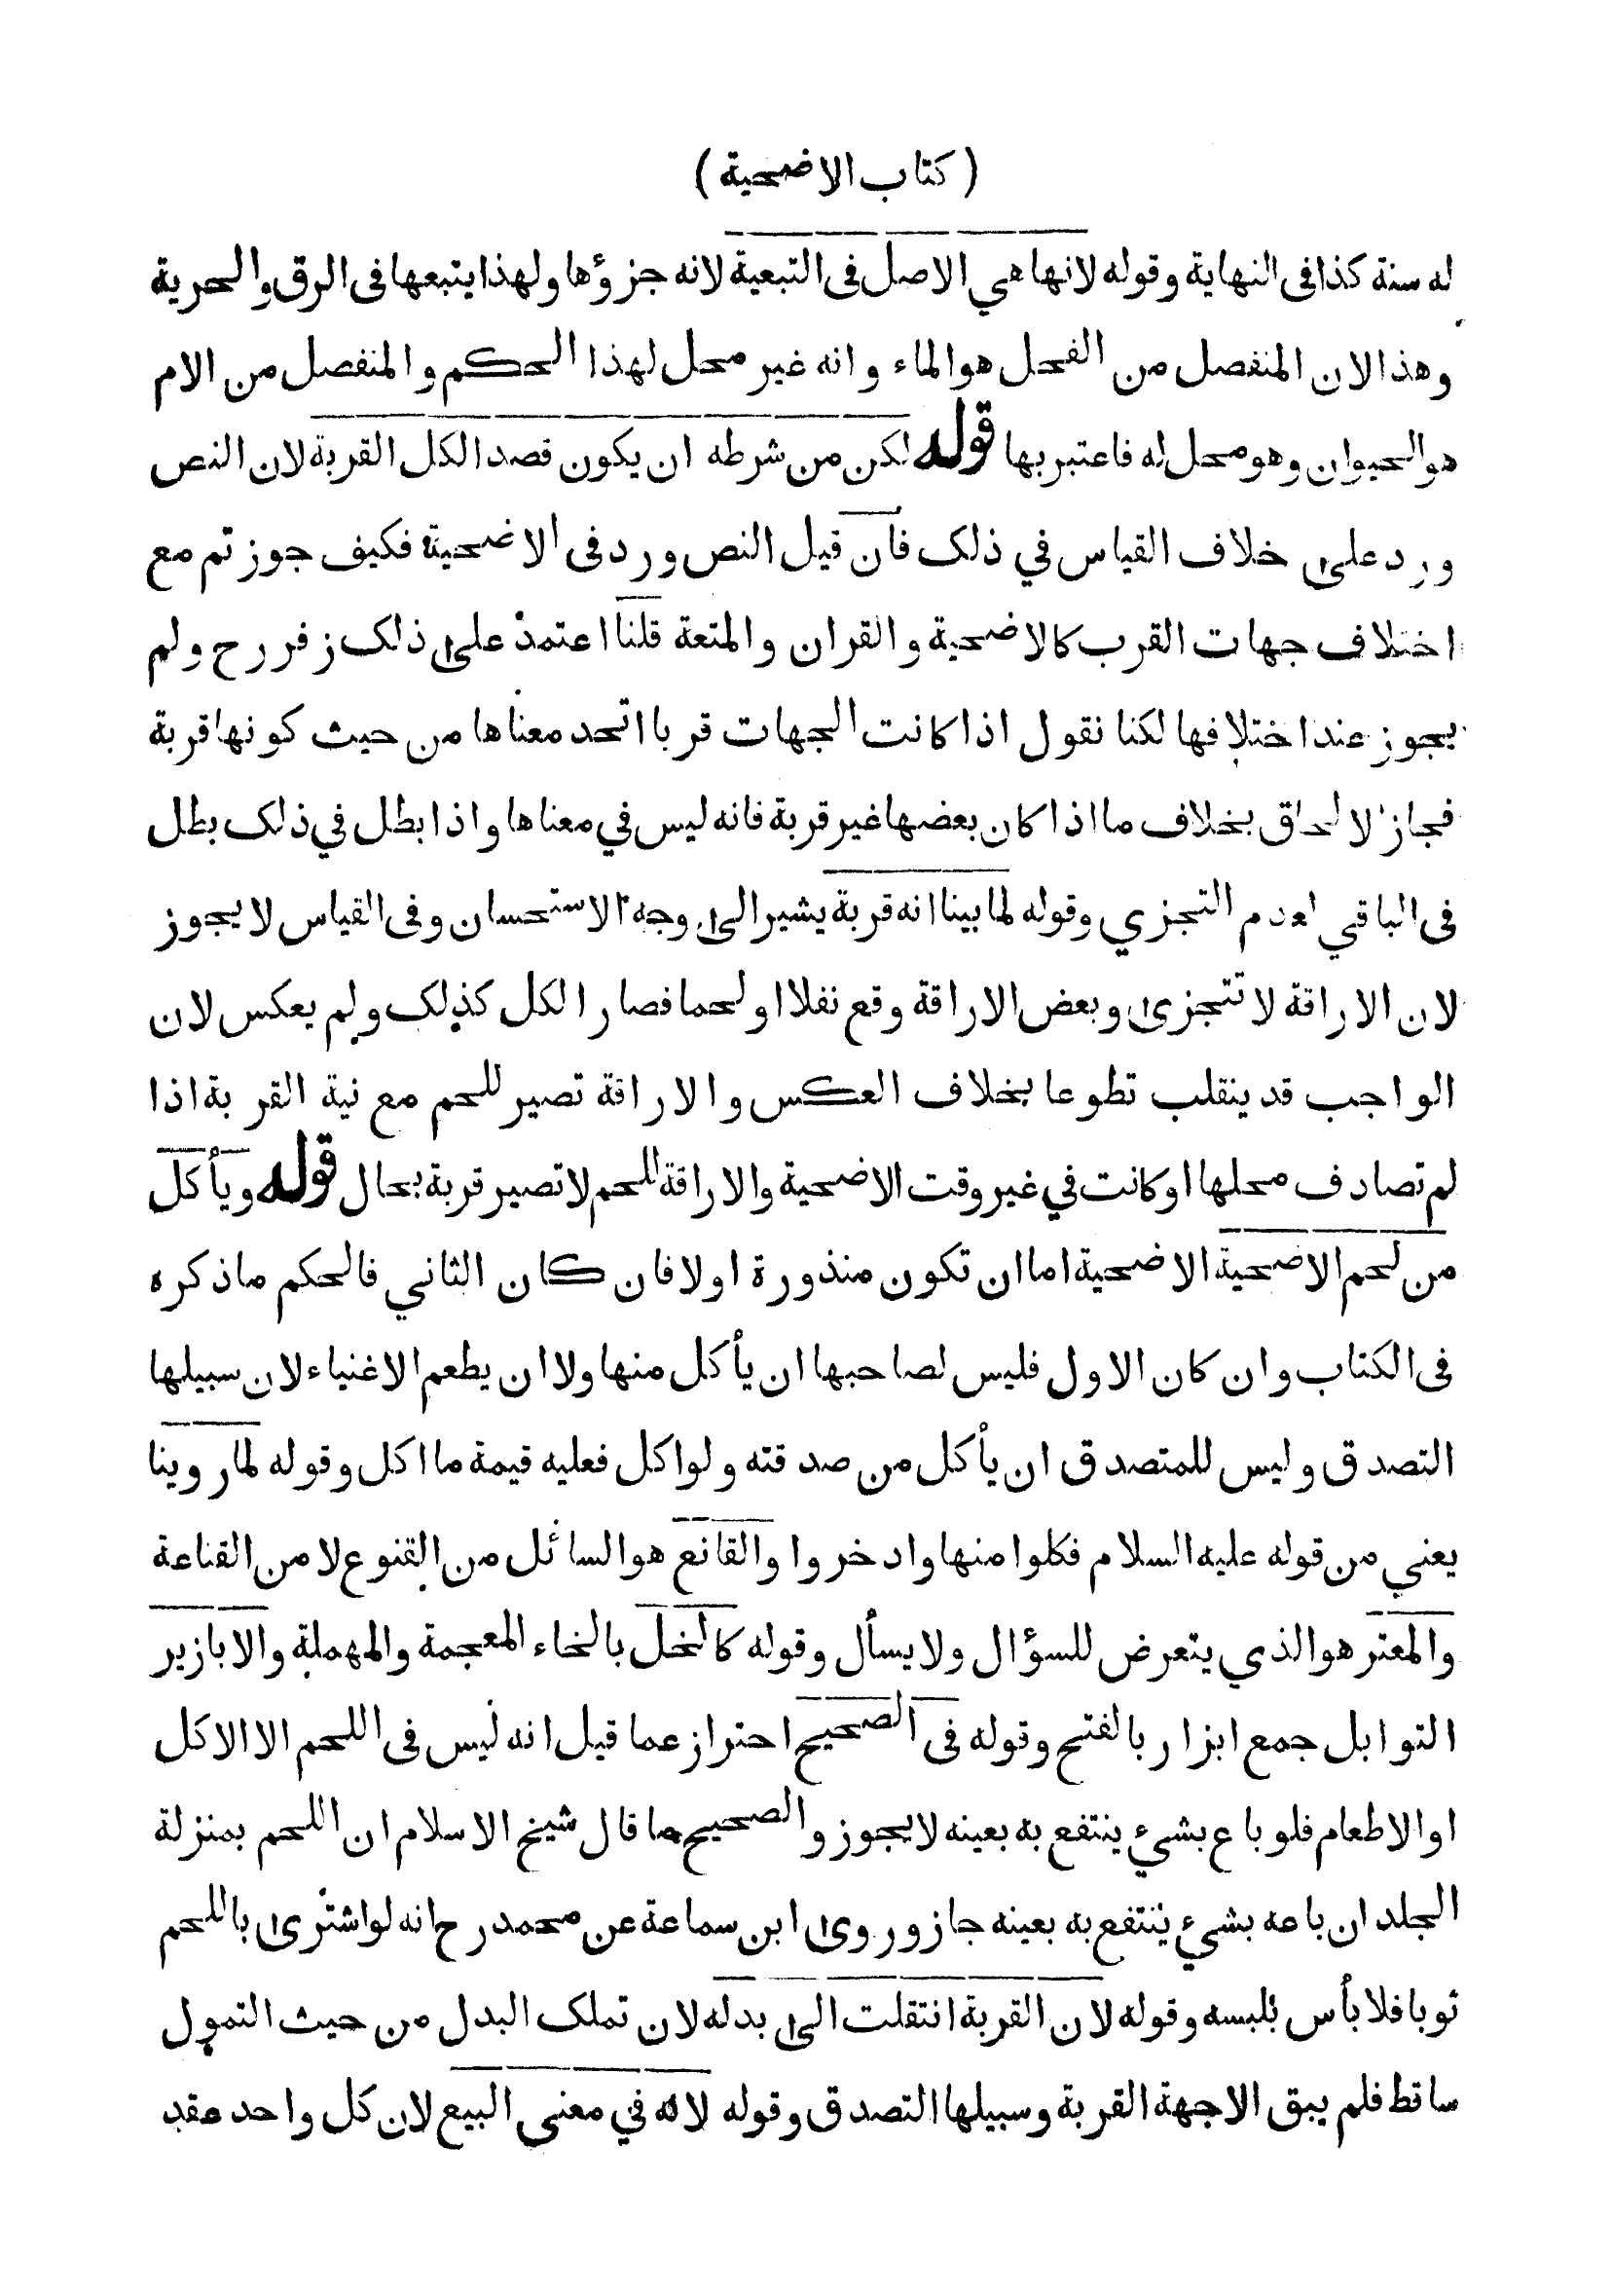 ( كتاب الاضحية )
له سنة كذا فى النهاية وقوله لانها هي الاصل فى التبعية لانه جزؤها ولهذا يتبعها فى الرق والحرية
وهذا لان المنفصل من الفحل هو الماء وانه غير محل لهذا الحكم والمنفصل من الام
هو الحيوان وهو محل له فاعتبر بها قوله لكن من شرطه ان يكون قصد الكل القربة لان النص
ورد على خلاف القياس في ذلك فان قيل النص ورد فى الاضحية فكيف جوزتم مع
اختلاف جهات القرب كالاضحية والقران والمتعة قلنا اعتمد على ذلك زفر رح ولم
يجوز عند اختلافها لكنا نقول اذا كانت الجهات قربا اتحد معناها من حيث كونها قربة
فجاز الالحاق بخلاف ما اذا كان بعضها غير قربة فانه ليس في معناها واذا بطل في ذلك بطل
فى الباقي لعدم التجزي وقوله لما بينا انه قربة يشير الى وجه الاستحسان وفى القياس لا يجوز
لان الاراقة لا تتجزى وبعض الاراقة وقع نفلا او لحما فصار الكل كذلك ولم يعكس لان
الواجب قد ينقلب تطوعا بخلاف العكس والاراقة تصير للحم مع نية القربة اذا
لم تصادف محلها او كانت في غير وقت الاضحية والاراقة للحم لا تصير قربة بحال قوله ويأكل
من لحم الاضحية الاضحية اما ان تكون منذورة اولا فان كان الثاني فالحكم ما ذكره
فى الكتاب وان كان الاول فليس لصاحبها ان يأكل منها ولا ان يطعم الاغنياء لان سبيلها
التصدق وليس للمتصدق ان يأكل من صدقته ولو اكل فعليه قيمة ما اكل وقوله لما روينا
يعني من قوله عليه السلام فكلوا منها وادخروا والقانع هو السائل من القنوع لا من القناعة
والمعتر هو الذي يتعرض للسؤال ولا يسأل وقوله كالخل بالخاء المعجمة والمهملة والابازير
التوابل جمع ابزار بالفتح وقوله فى الصحيح احتراز عما قيل انه ليس فى اللحم الا الاكل
او الاطعام فلو باع بشيء ينتفع به بعينه لا يجوز والصحيح ما قال شيخ الاسلام ان اللحم بمنزلة
الجلد ان باعه بشيء ينتفع به بعينه جاز وروى ابن سماعة عن محمد رح انه لو اشترى باللحم
ثوبا فلا بأس بلبسه وقوله لان القربة انتقلت الى بدله لان تملك البدل من حيث التمول
ساقط فلم يبق الا جهة القربة وسبيلها التصدق وقوله لانه في معنى البيع لان كل واحد عقد